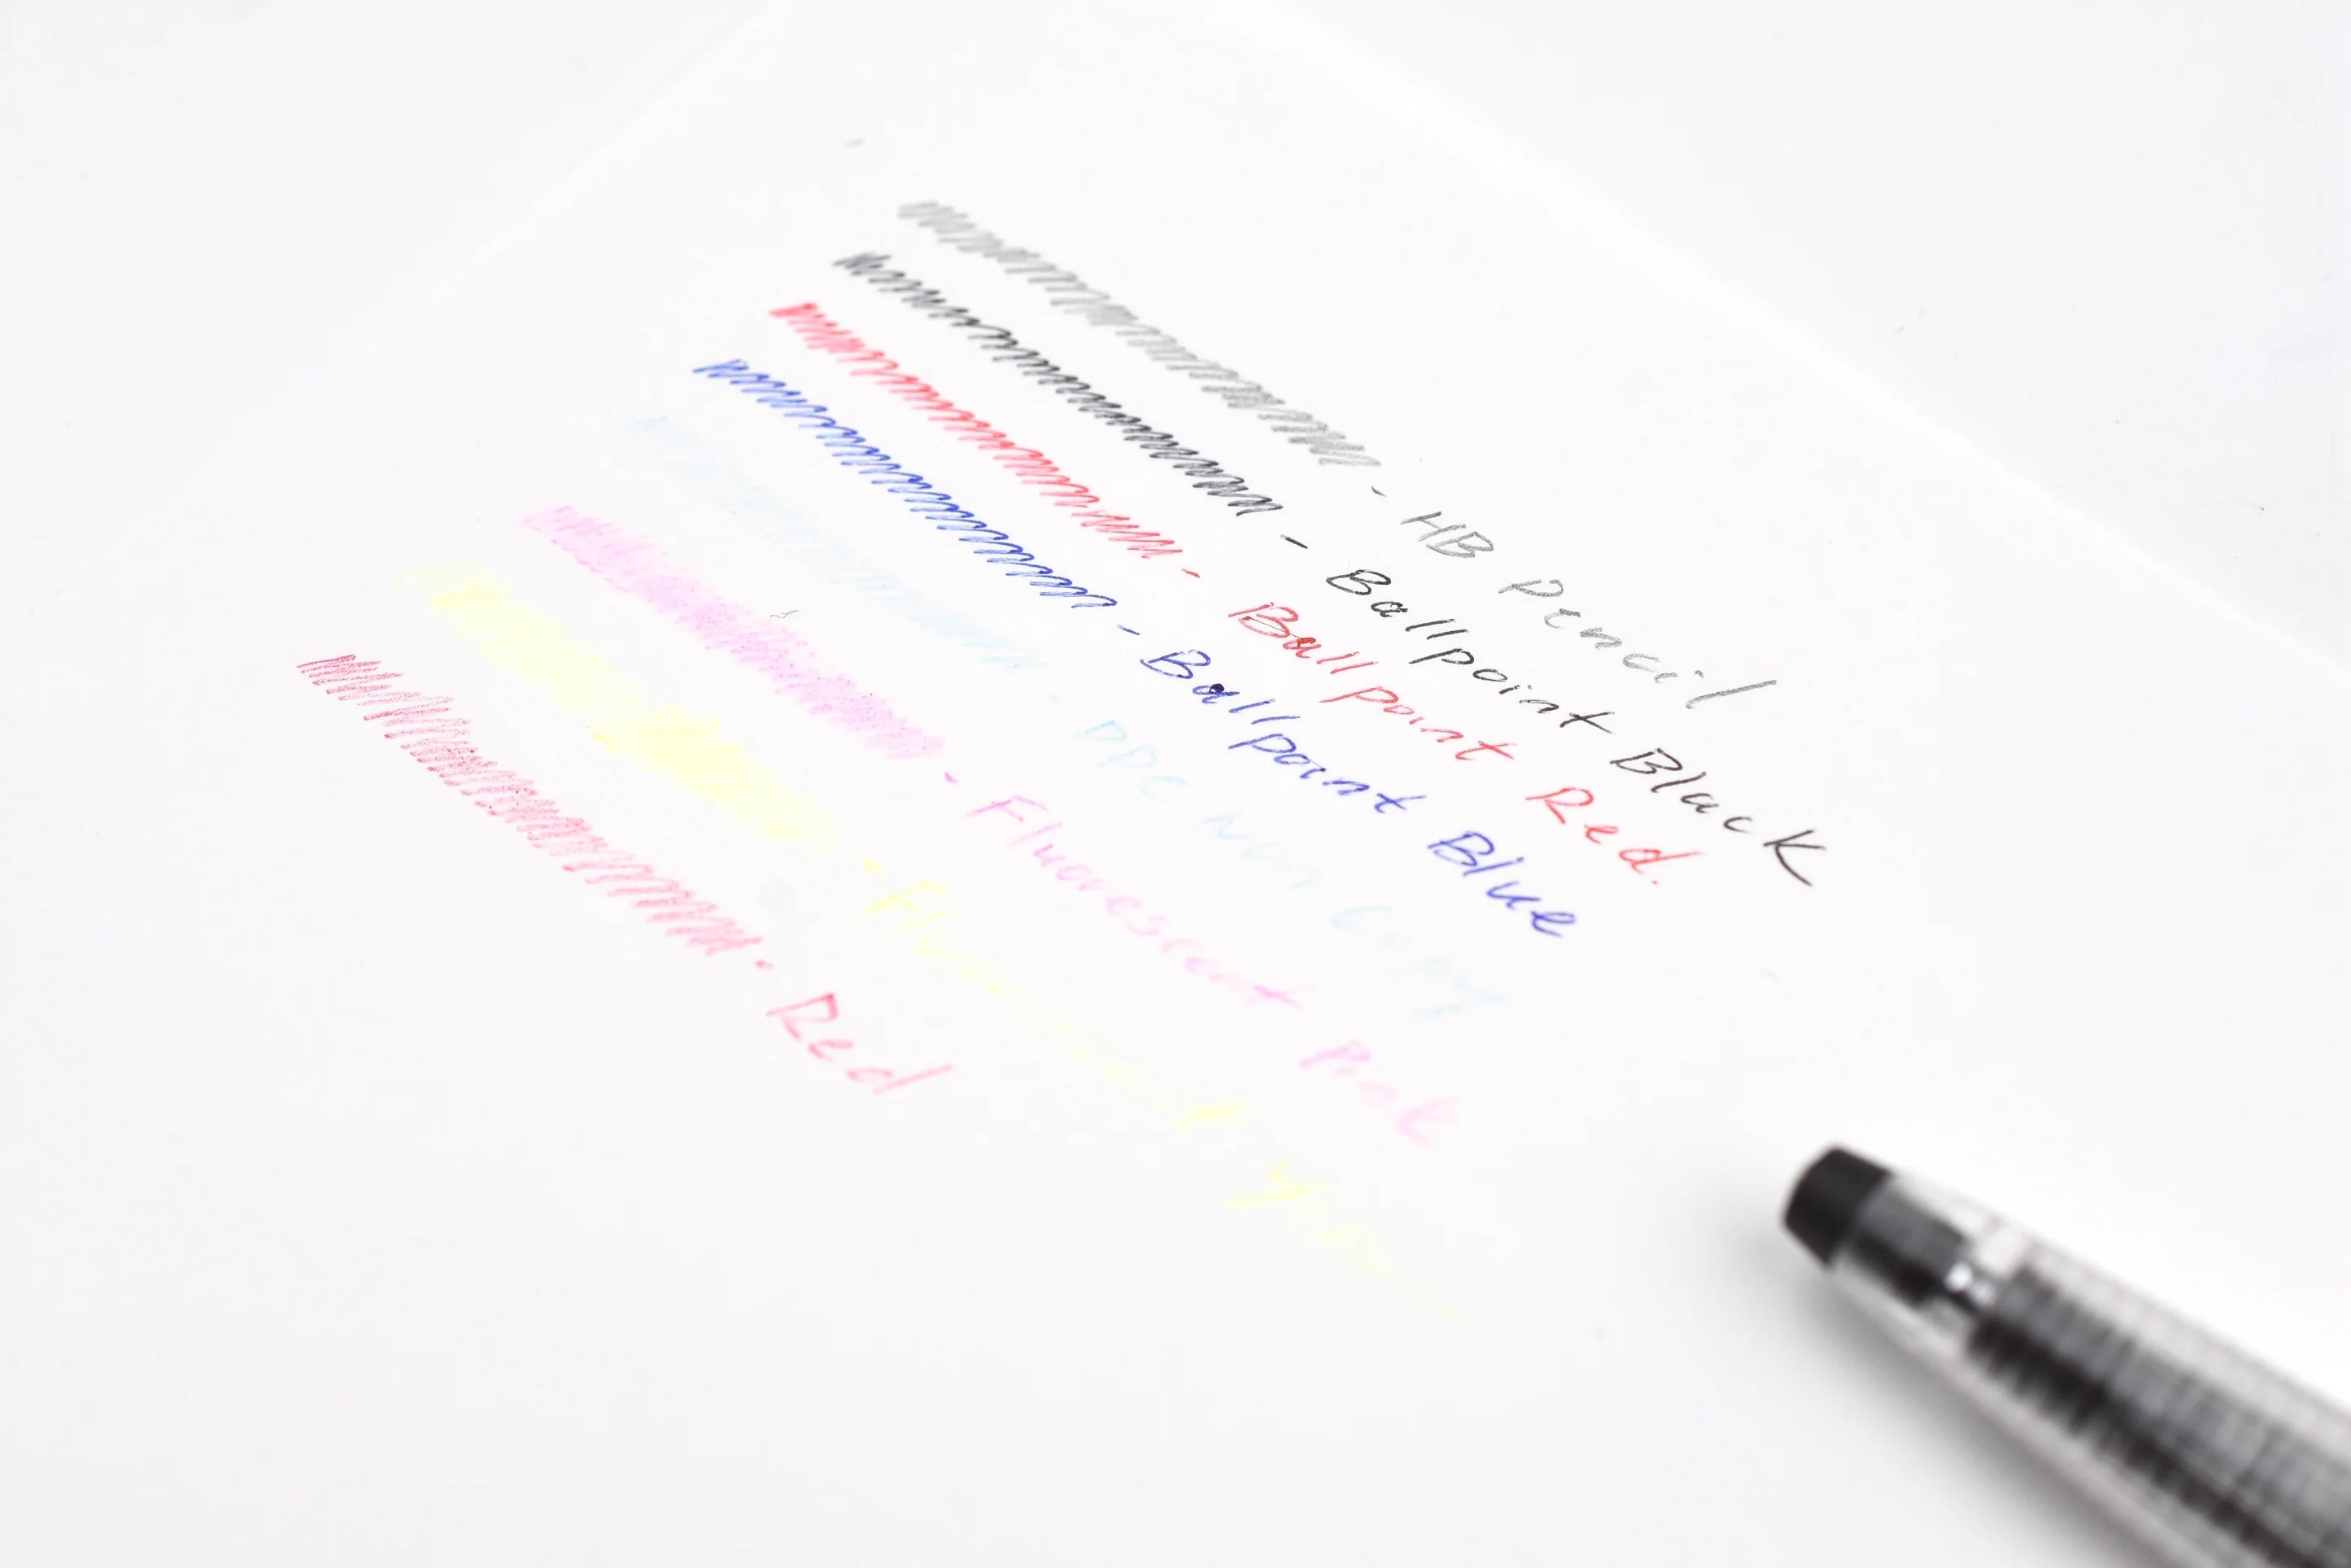 - HB Pencil
- Ballpoint Black
- Ballpoint Red.
- Ballpoint Blue
- PPC Non Copy
- Fluorescent Pink
- Fluorescent Yellow
- Red